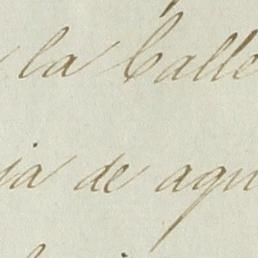 la Calle
ia de aqu